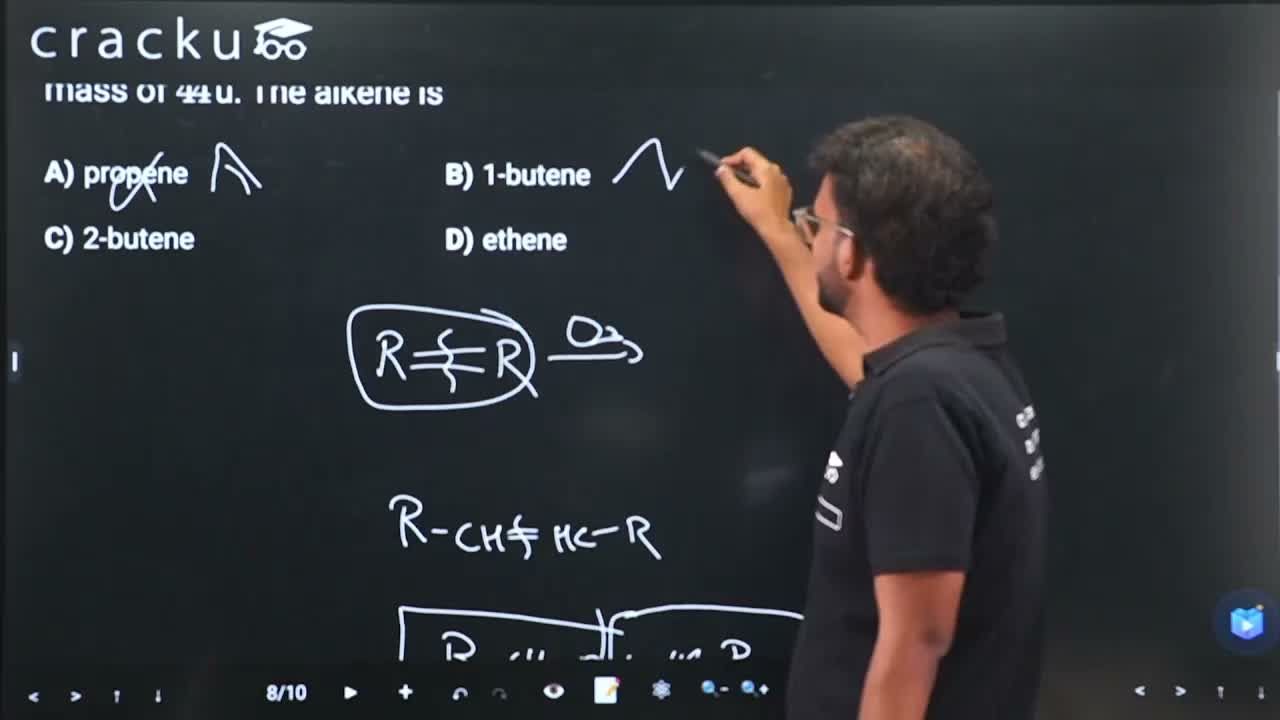 cracku
mass of 44 u. The alkene is
A) propene
B) 1-butene
C) 2-butene
D) ethene
R = R O₃
R-CH=HC-R
8/10